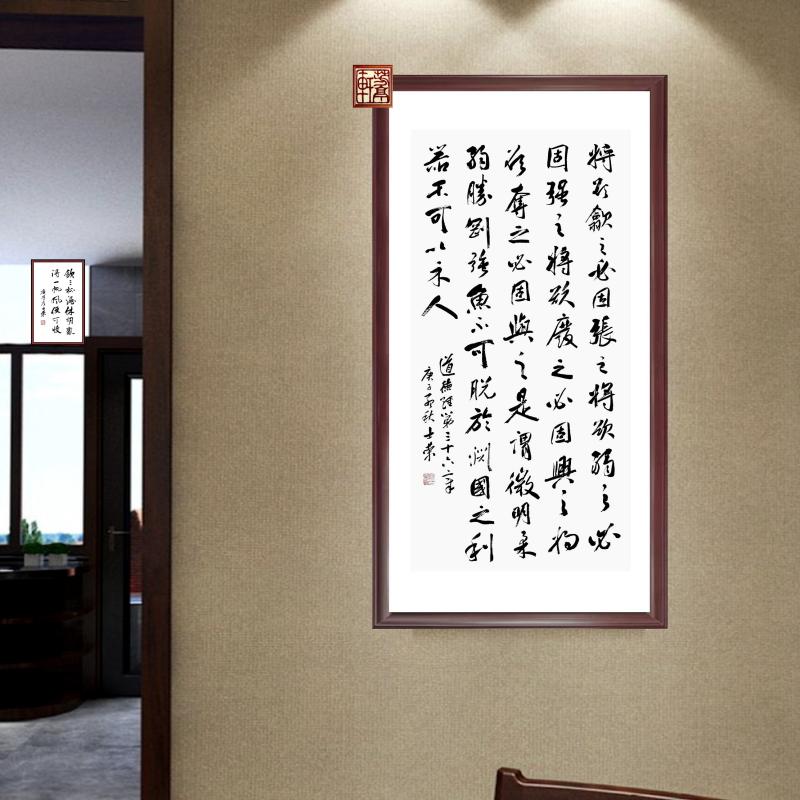 將欲歙之必固張之將欲弱之必
固强之將欲廢之必固興之將
欲奪之必固與之是謂微明柔
弱勝剛强魚不可脱於淵國之利
器不可以示人
道德經第三十六章
庚子秋士榮